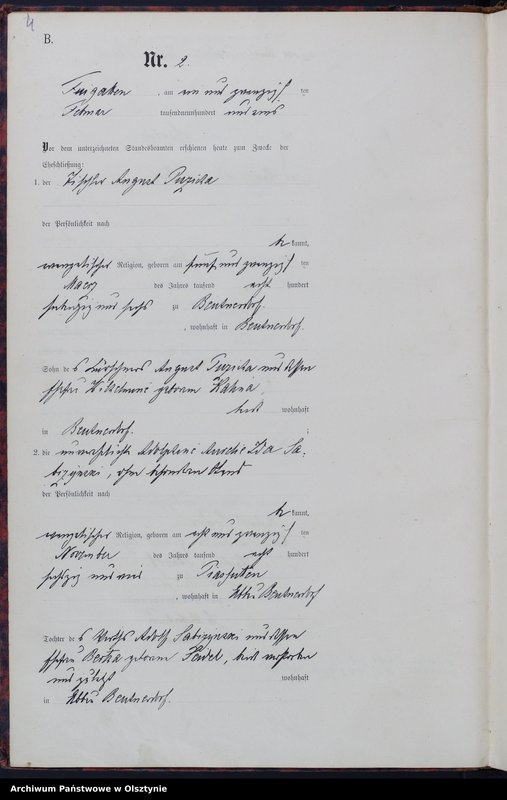 4
B.
Nr. 2.
, am ein und zwanzigsten
Februar tausendneunhundert und eins
Vor dem unterzeichneten Standesbeamten erschienen heute zum Zwecke der
Eheschließung:
1. der Tischler August
der Persönlichkeit nach
be kannt,
evangelischer Religion, geboren am fünf und zwanzigsten
März des Jahres tausend acht hundert
siebenzig und sechs zu Beutnerdorf
, wohnhaft in Beutnerdorf.
Sohn des August und dessen
Ehefrau Wilhelmine geborene
beide wohnhaft
in Beutnerdorf. ;
2. die unverehelichte Adolphine Amalie Ida
, ohne besonderen Stand
der Persönlichkeit nach
be kannt,
evangelischer Religion, geboren am acht und zwanzigsten
November des Jahres tausend acht hundert
zu
, wohnhaft in Abbau Beutnerdorf
Tochter des Wirths Adolf und dessen
Ehefrau geborene , beide verstorben
und zuletzt wohnhaft
in Abbau Beutnerdorf.
Archiwum Państwowe w Olsztynie